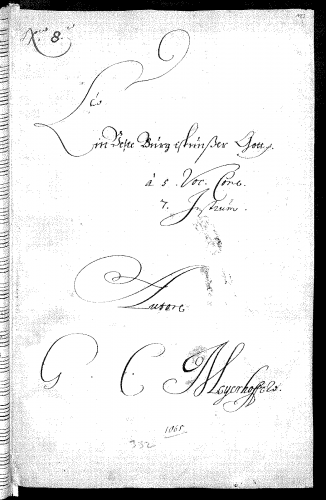 No: 8.
Ein veste Burg ist unser Gott.
à 5 Voc. Conc.
7. Instrum.
Autore
G. C. Meyerhoff
1065
352